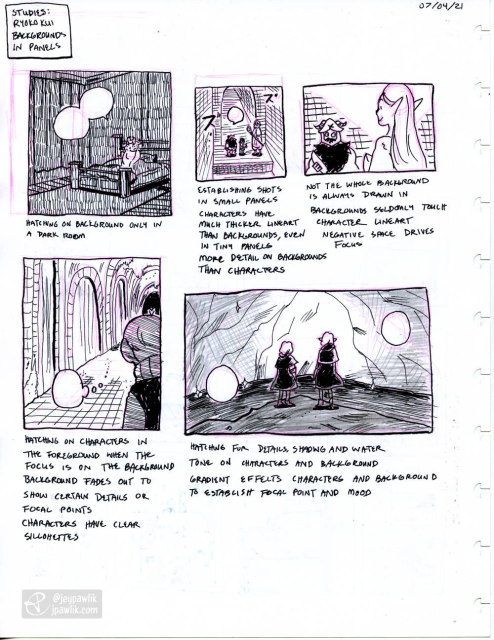 07/04/21
STUDIES:
RYOKO KUI
BACKGROUNDS
IN PANELS
HATCHING ON BACKGROUND ONLY IN
A DARK ROOM
ESTABLISHING SHOTS
IN SMALL PANELS
CHARACTERS HAVE
MUCH THICKER LINEART
THAN BACKGROUNDS, EVEN
IN TINY PANELS
MORE DETAIL ON BACKGROUNDS
THAN CHARACTERS
NOT THE WHOLE BACKGROUND
IS ALWAYS DRAWN IN
BACKGROUNDS SELDOMLY TOUCH
CHARACTER LINEART
NEGATIVE SPACE DRIVES
FOCUS
HATCHING ON CHARACTERS IN
THE FOREGROUND WHEN THE
FOCUS IS ON THE BACKGROUND
BACKGROUND FADES OUT TO
SHOW CERTAIN DETAILS OR
FOCAL POINTS
CHARACTERS HAVE CLEAR
SILLOHETTES
HATCHING FOR DETAILS, SHADING AND WATER
TONE ON CHARACTERS AND BACKGROUND
GRADIENT EFFECTS CHARACTERS AND BACKGROUND
TO ESTABLISH FOCAL POINT AND MOOD
@jeypawlik
jpawlik.com